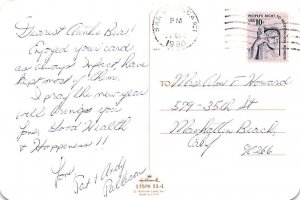 Dearest Auntie Bea!
Enjoyed your card
as always. In fact, have
kept most of them.
I pray the new year
will brings you
Good Health
& Happiness!!
Love,
Pat & Andy
PM
1980
PEOPLE'S RIGHT TO
USA 10c
TO
Miss Ann T. Howard
579-35th St
Manhattan Beach,
Calif
90266
Hallmark
175PX 51-1